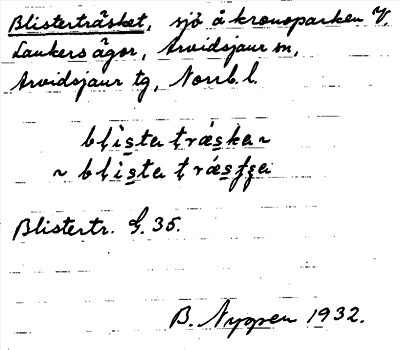 Blisterträsket, sjö å kronoparken V.
Laukers ägor, Arvidsjaur sn,
Arvidsjaur tg, Norrb. l.
blista träska ~
~ blista träsʃʒa
Blistertr. G. 35.
B. Nyppen 1932.